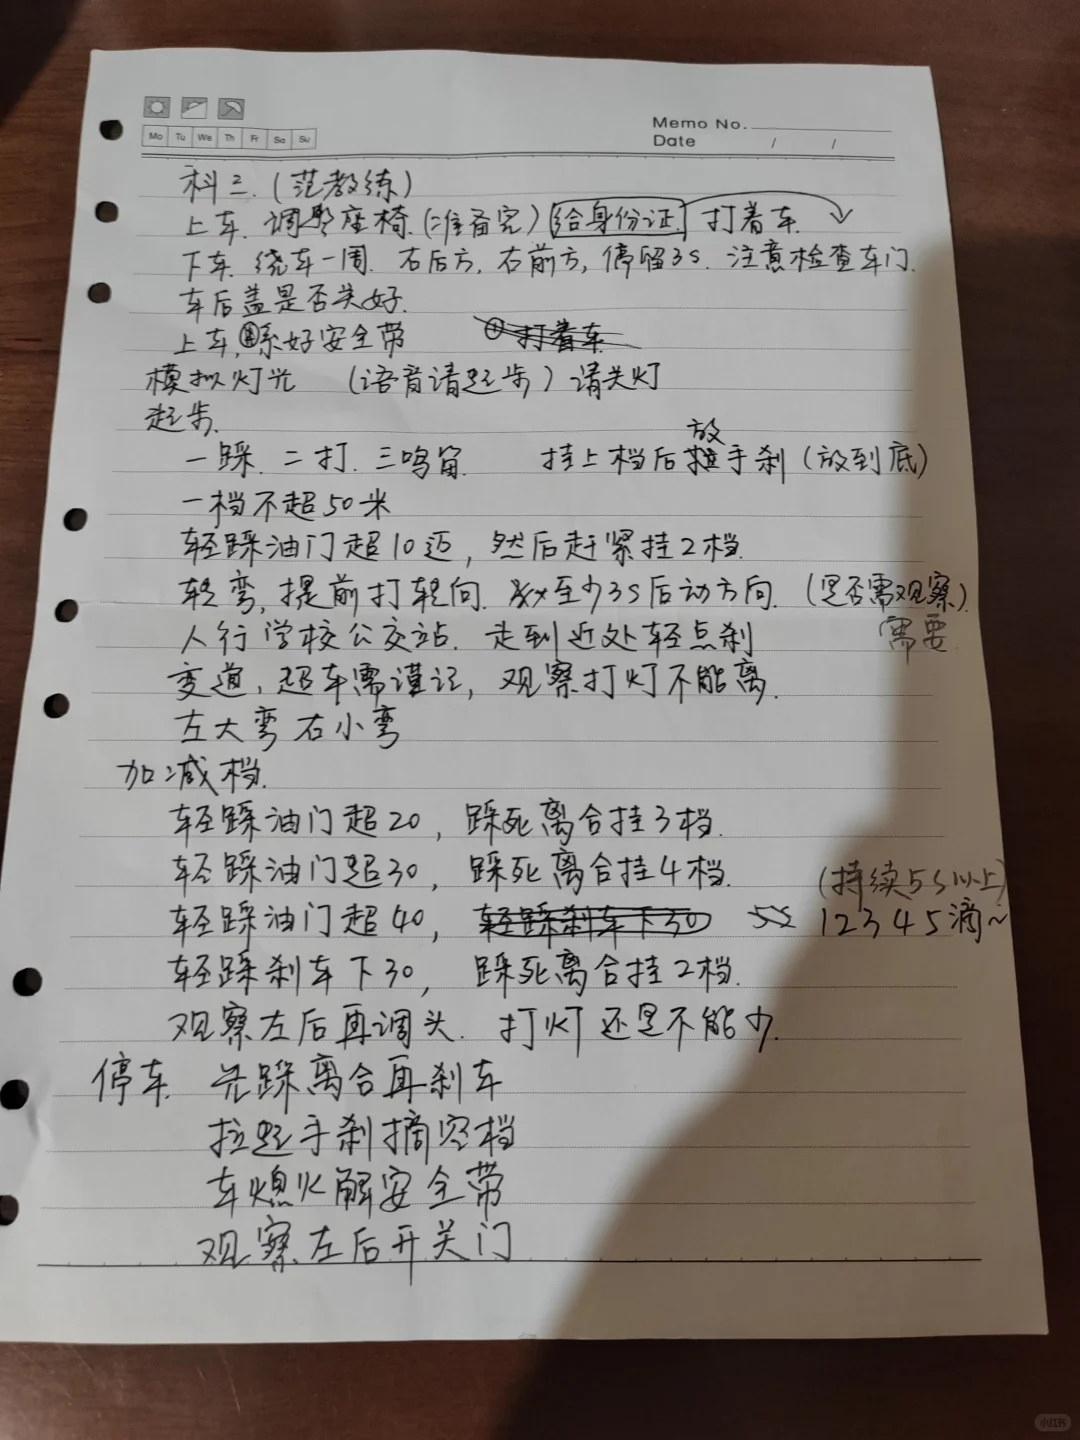 Mo Tu We Th Fr Sa Su
Memo No.
Date / /
科三.(范教练)
上车.调整座椅.(准备完)给身份证 打着车.
下车.绕车一周.右后方,右前方,停留3s.注意检查车门.
车后盖是否关好.
上车,系好安全带 打着车.
模拟灯光 (语音请起步)请关灯
起步.
放
一踩.二打.三鸣笛. 挂上档后手刹(放到底)
一档不超50米
轻踩油门超10迈,然后赶紧挂2档.
转弯,提前打转向.数至少3S后动方向.(是否需观察)
人行学校公交站.走到近处轻点刹 需要.
变道,超车需谨记,观察打灯不能离.
左大弯 右小弯
加减档.
轻踩油门超20,踩死离合挂3档.
轻踩油门超30,踩死离合挂4档. (持续5s以上)
轻踩油门超40,轻踩刹车下30 12345滴~
轻踩刹车下30,踩死离合挂2档.
观察左后再调头.打灯还是不能少.
停车 先踩离合再刹车
拉起手刹摘空档
车熄火解安全带
观察左后开关门
小红书